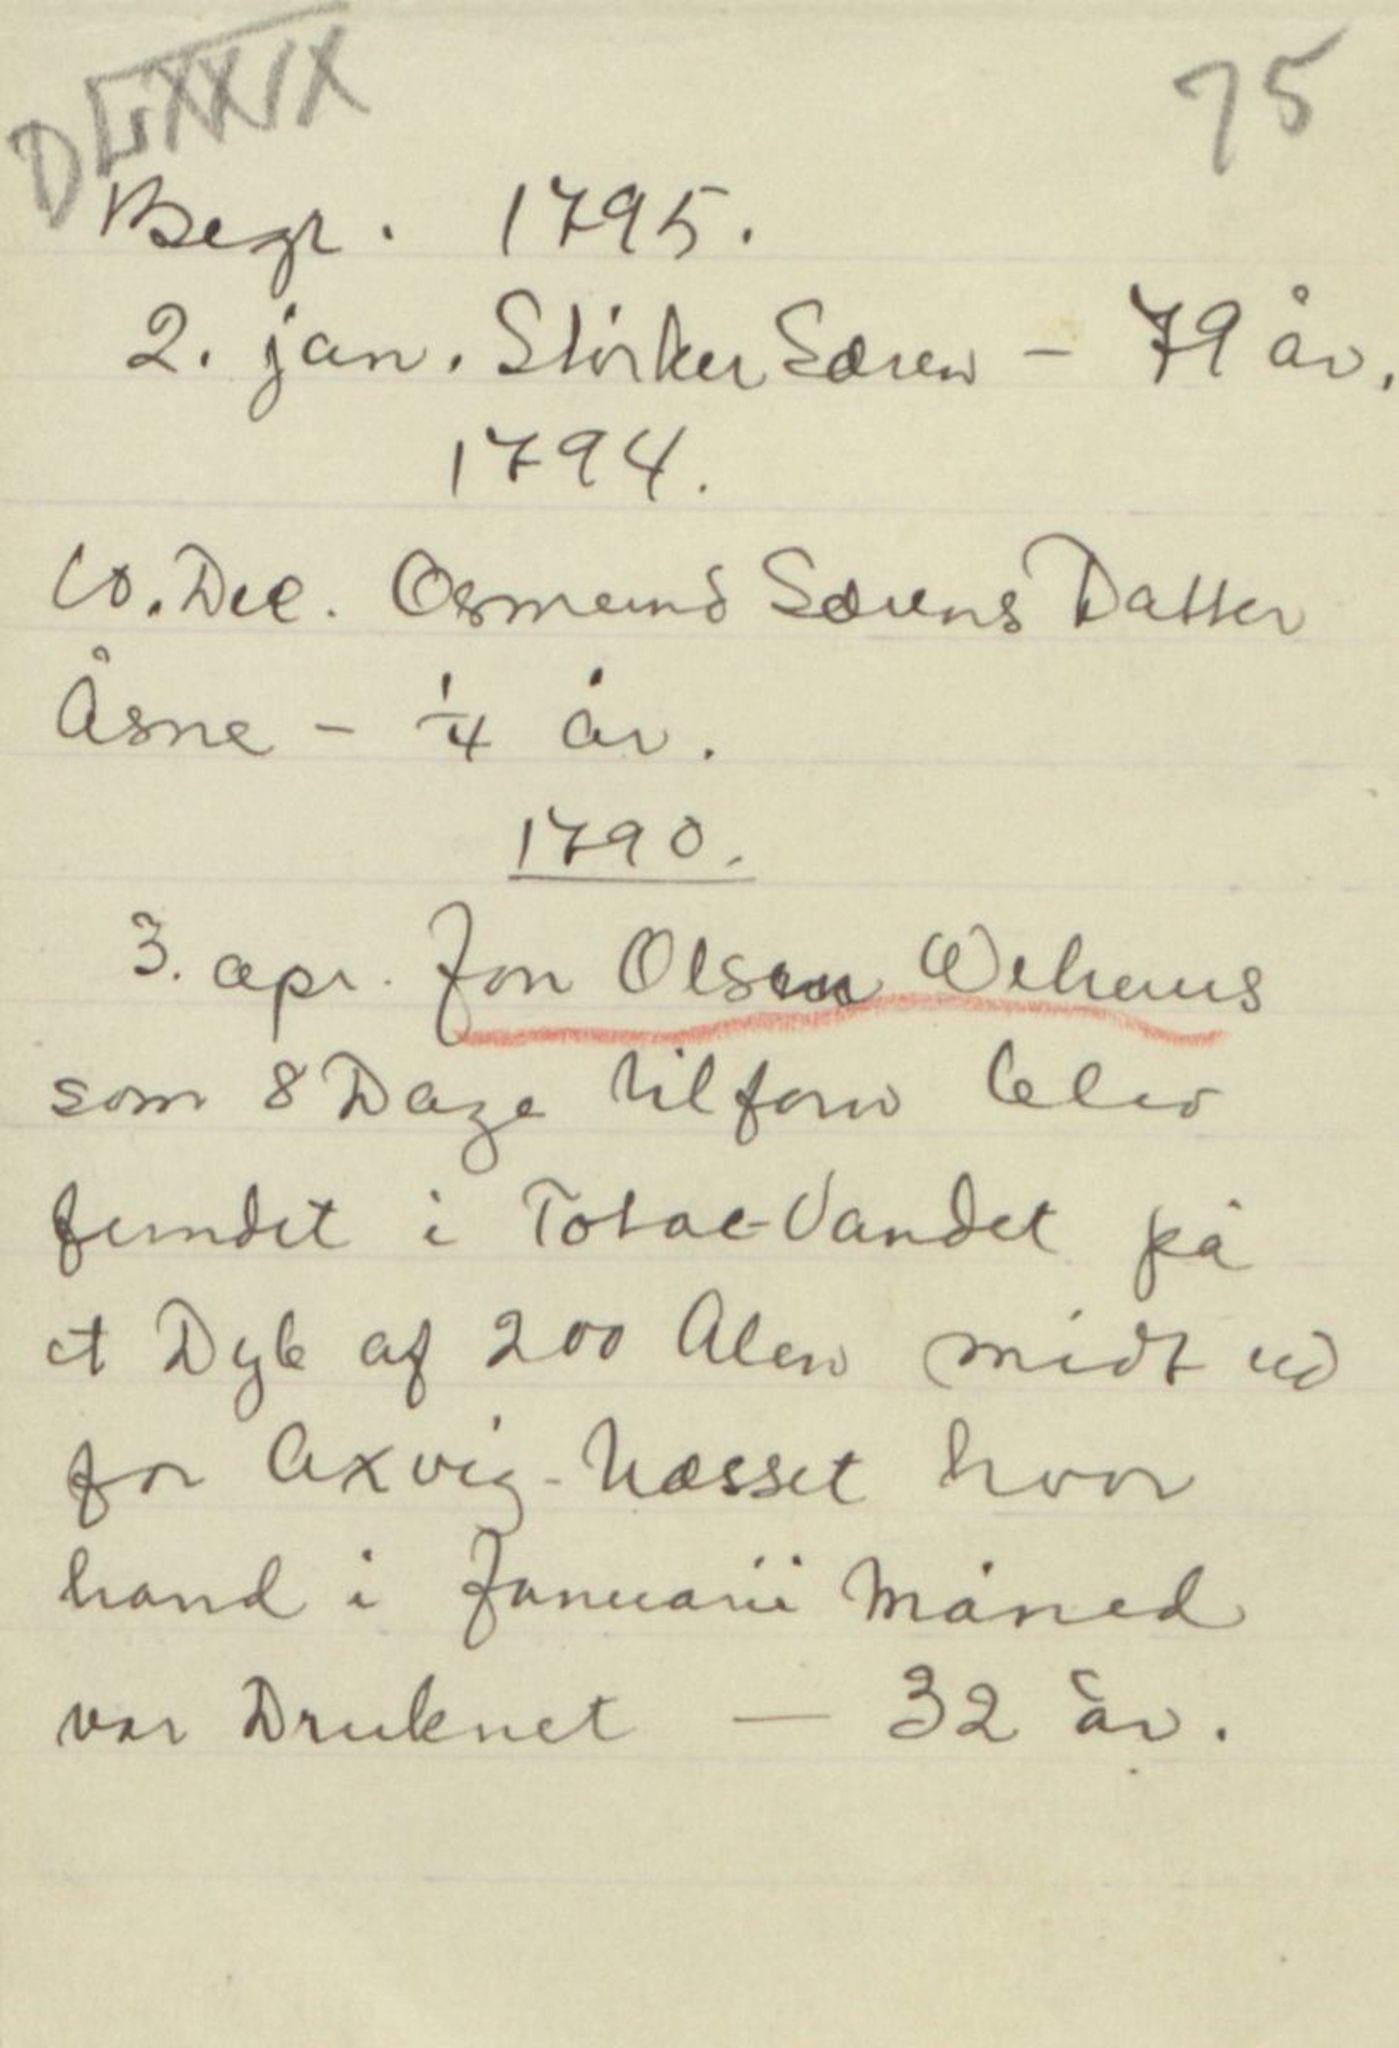 75
Begr. 1795.
2. jan. Störker Særen - 79 år.
1794.
10. Dec. Osmund Særens Datter
Åsne - 1/4 år.
1790.
3. apr. Jon Olsen Wehuus
som 8 Dage tilforn blev
fundet i Totac-Vandet på
et Dyb af 200 Alen midt ud
for Axvig-Næsset hvor
hand i Januarii Måned
var Druknet — 32 år.